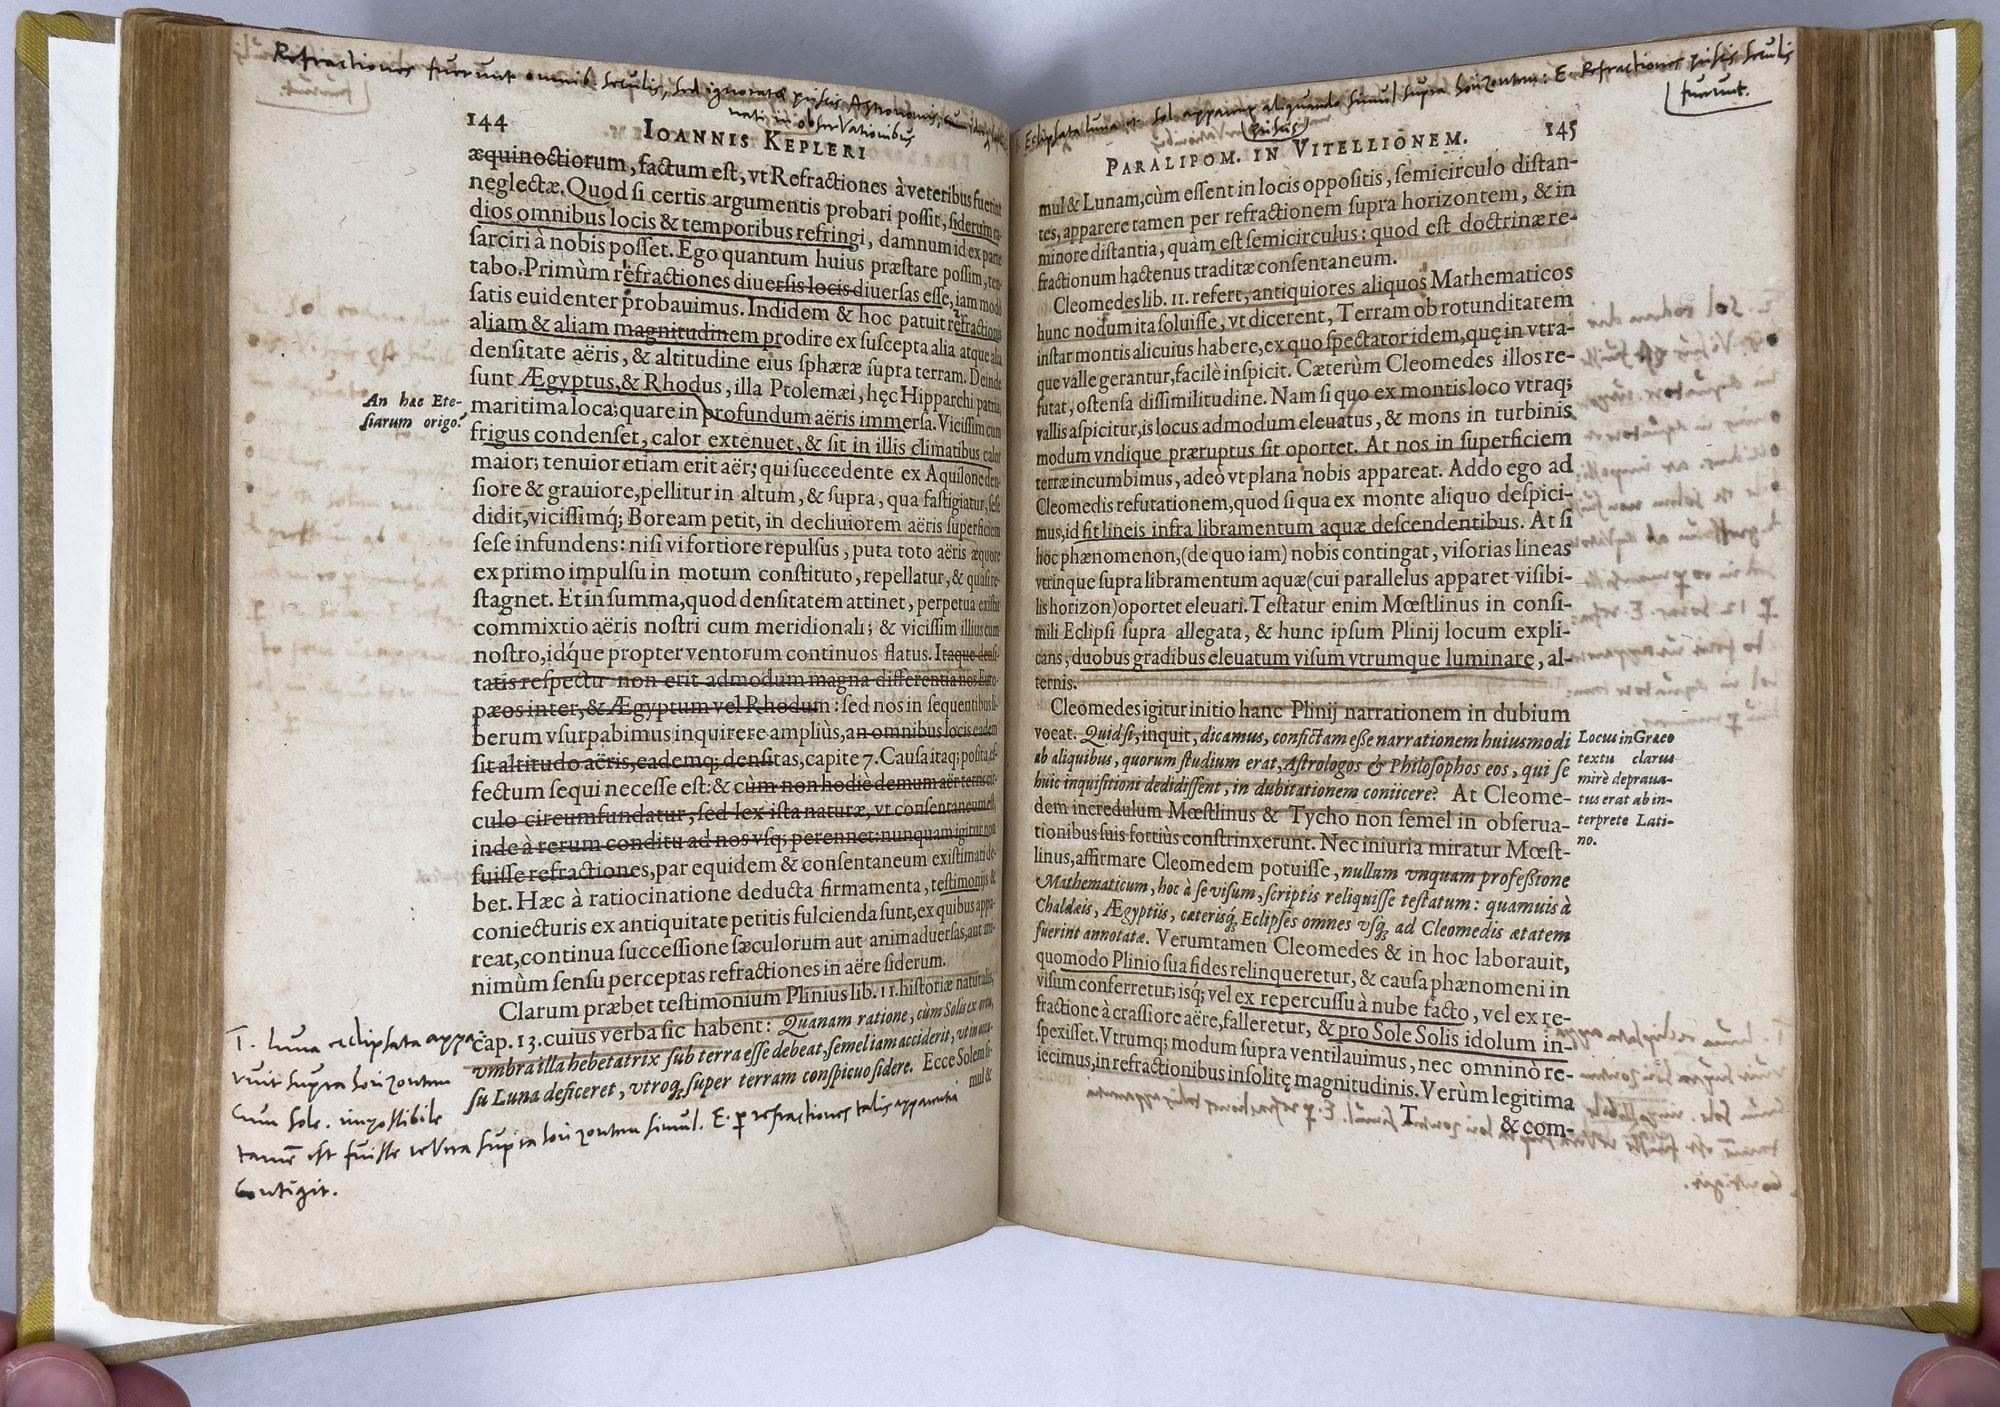 Refractiones fuerunt omnib. seculis, sed ignoratæ priscis Astronomis,
in observationibus
144
IOANNIS KEPLERI
æquinoctiorum, factum est, vt Refractiones à veteribus fuerint
neglectæ. Quod si certis argumentis probari possit, siderum ra-
dios omnibus locis & temporibus refringi, damnum id ex parte
sarciri à nobis posset. Ego quantum huius præstare possim, ten-
tabo. Primùm refractiones diuersis locis diuersas esse, iam modò
satis euidenter probauimus. Indidem & hoc patuit refractionis
aliam & aliam magnitudinem prodire ex suscepta alia atque alia
densitate aëris, & altitudine eius sphæræ supra terram. Deinde
sunt Ægyptus, & Rhodus, illa Ptolemæi, hęc Hipparchi patria,
maritima loca; quare in profundum aëris immersa. Vicissim cum
frigus condenset, calor extenuet, & sit in illis climatibus calor
maior; tenuior etiam erit aër; qui succedente ex Aquilone den-
siore & grauiore, pellitur in altum, & supra, qua fastigiatur, sese
didit, vicissimq́; Boream petit, in decliuiorem aëris superficiem
sese infundens: nisi vi fortiore repulsus, puta toto aëris æquore
ex primo impulsu in motum constituto, repellatur, & quasi re-
stagnet. Et in summa, quod densitatem attinet, perpetua existit
commixtio aëris nostri cum meridionali; & vicissim illius cum
nostro, idq́ue propter ventorum continuos flatus. Itaque densi-
tatis respectu non erit admodum magna differentia nos Euro-
pæos inter, & Ægyptum vel Rhodum: sed nos in sequentibus li-
berum vsurpabimus inquirere ampliùs, an omnibus locis eadem
sit altitudo aëris, eademq; densitas, capite 7. Causa itaq; posita, ef-
fectum sequi necesse est: & cùm non hodiè demum aër terris cir-
culo circumfundatur, sed lex ista naturæ, vt consentaneum est,
inde à rerum conditu ad nos vsq; perennet: nunquam igitur non
fuisse refractiones, par equidem & consentaneum existimari de-
bet. Hæc à ratiocinatione deducta firmamenta, testimonijs &
coniecturis ex antiquitate petitis fulcienda sunt, ex quibus appa-
reat, continua successione sæculorum aut animaduersas, aut mi-
nimùm sensu perceptas refractiones in aëre siderum.
Clarum præbet testimonium Plinius lib. 11. historiæ naturalis,
cap. 13. cuius verba sic habent: Quanam ratione, cùm Solis ex ortu,
vmbra illa hebetatrix sub terra esse debeat, semel iam acciderit, vt in occa-
su Luna deficeret, vtroq, super terram conspicuo sidere. Ecce Solem si-
mul &
An hæc Ete-
siarum origo?
T. luna eclipsata appa-
ruit supra horizontem
cum sole. impossibile
tamē est fuisse revera supra horizontem simul. E. p refractiones talis apparentia
contigit.
Eclipsata luna, et sol apparent aliquando simul supra horizontem: E. Refractiones priscis seculis
fuerunt.
PARALIPOM. IN VITELLIONEM.
145
mul & Lunam, cùm essent in locis oppositis, semicirculo distan-
tes, apparere tamen per refractionem supra horizontem, & in
minore distantia, quàm est semicirculus: quod est doctrinæ re-
fractionum hactenus traditæ consentaneum.
Cleomedes lib. 11. refert, antiquiores aliquos Mathematicos
hunc nodum ita soluisse, vt dicerent, Terram ob rotunditatem
instar montis alicuius habere, ex quo spectator idem, quę in vtra-
que valle gerantur, facilè inspicit. Cæterùm Cleomedes illos re-
futat, ostensa dissimilitudine. Nam si quo ex montis loco vtraq;
vallis aspicitur, is locus admodum eleuatus, & mons in turbinis
modum vndique præruptus sit oportet. At nos in superficiem
terræ incumbimus, adeò vt plana nobis appareat. Addo ego ad
Cleomedis refutationem, quod si qua ex monte aliquo despici-
mus, id fit lineis infra libramentum aquæ descendentibus. At si
hoc phænomenon, (de quo iam) nobis contingat, visorias lineas
vtrinque supra libramentum aquæ (cui parallelus apparet visibi-
lis horizon) oportet eleuari. Testatur enim Mœstlinus in consi-
mili Eclipsi supra allegata, & hunc ipsum Plinij locum expli-
cans, duobus gradibus eleuatum visum vtrumque luminare, al-
ternis.
Cleomedes igitur initio hanc Plinij narrationem in dubium
vocat. Quid si, inquit, dicamus, confictam esse narrationem huiusmodi
ab aliquibus, quorum studium erat, Astrologos & Philosophos eos, qui se
huic inquisitioni dedidissent, in dubitationem coniicere? At Cleome-
dem incredulum Mœstlinus & Tycho non semel in obserua-
tionibus suis fortiùs constrinxerunt. Nec iniuria miratur Mœst-
linus, affirmare Cleomedem potuisse, nullum vnquam professione
Mathematicum, hoc à se visum, scriptis reliquisse testatum: quamuis à
Chaldæis, Ægyptiis, cæterisq́, Eclipses omnes vsq́, ad Cleomedis ætatem
fuerint annotatæ. Verumtamen Cleomedes & in hoc laborauit,
quomodo Plinio sua fides relinqueretur, & causa phænomeni in
visum conferretur; isq́; vel ex repercussu à nube facto, vel ex re-
fractione à crassiore aëre, falleretur, & pro Sole Solis idolum in-
spexisset. Vtrumq; modum supra ventilauimus, nec omninò re-
iecimus, in refractionibus insolitę magnitudinis. Verùm legitima
T
& com-
Locus in Græco
textu clarus
mirè deprava-
tus erat ab in-
terprete Lati-
no.